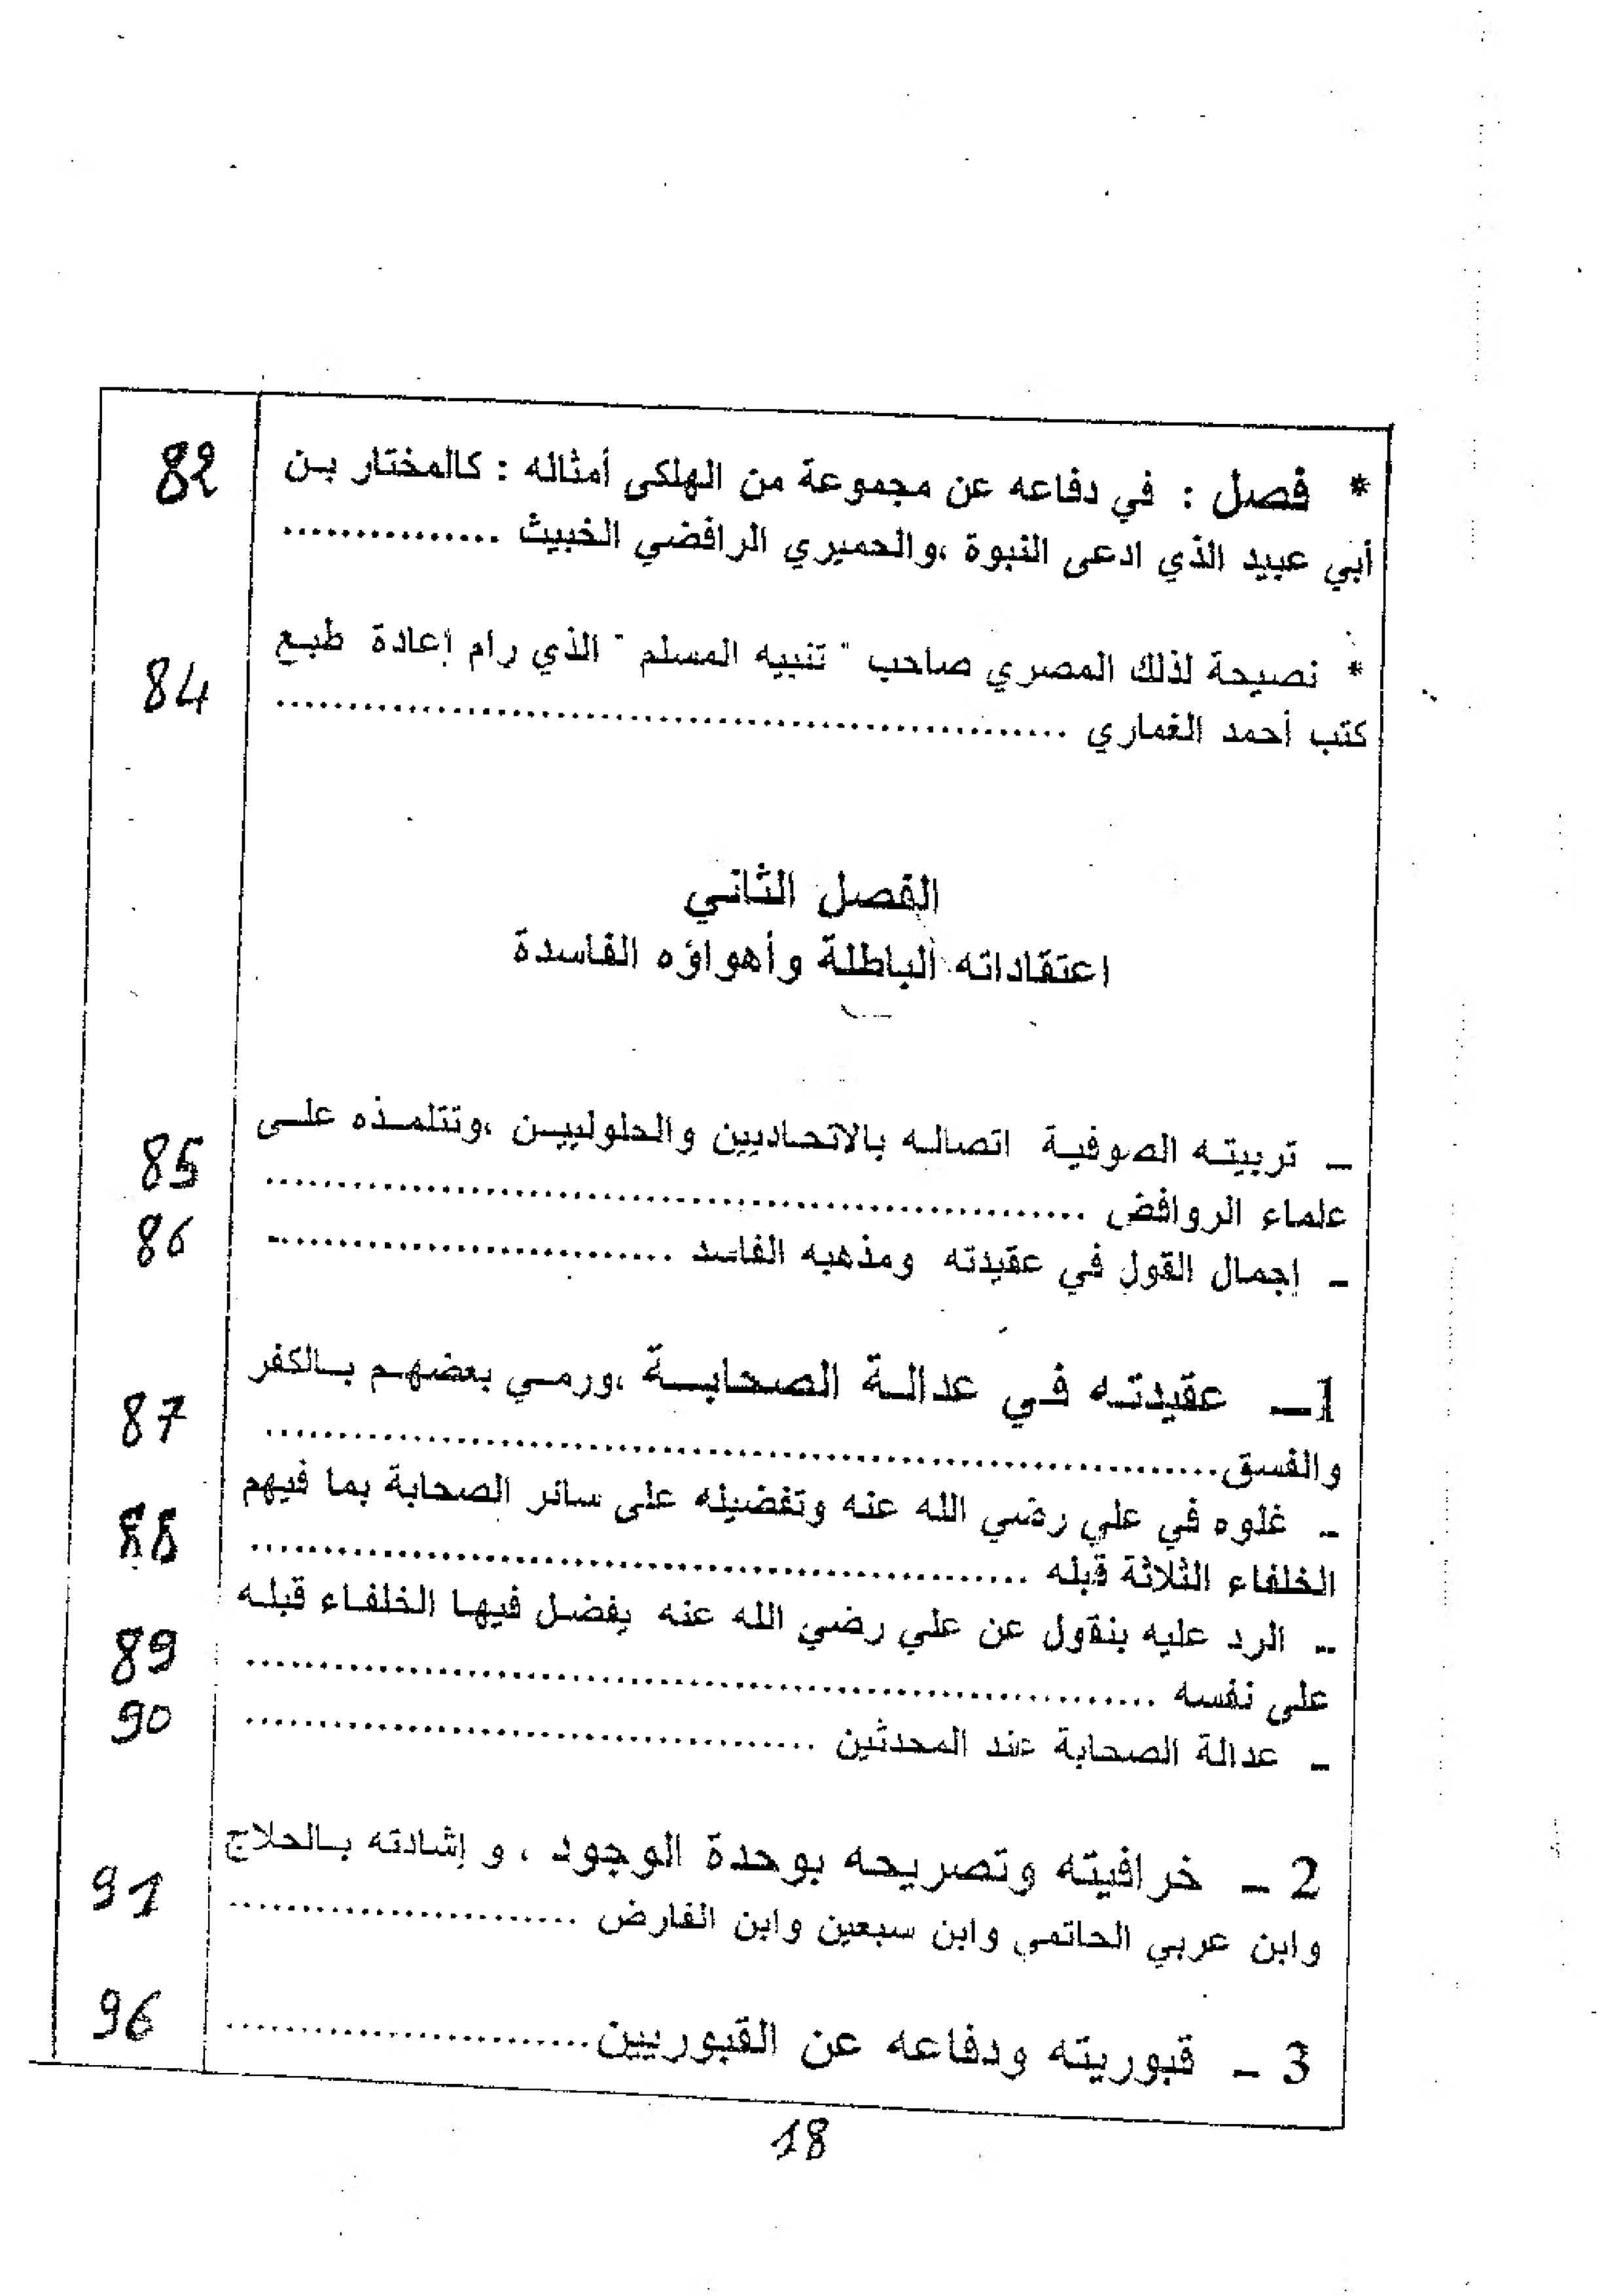 * فصل : في دفاعه عن مجموعة من الهلكى أمثاله : كالمختار بن 82
أبي عبيد الذي ادعى النبوة ،والحميري الرافضي الخبيث ...............
* نصيحة لذلك المصري صاحب " تنبيه المسلم " الذي رام إعادة طبع 84
كتب أحمد الغماري ......................................................
الفصل الثاني
اعتقاداته الباطلة وأهواؤه الفاسدة
– تربيته الصوفية اتصاله بالاتحاديين والحلوليين ،وتتلمذه على 85
علماء الروافض .........................................................
- إجمال القول في عقيدته ومذهبه الفاسد ........................... 86
1– عقيدته في عدالة الصحابة ،ورمي بعضهم بالكفر 87
والفسق.................................................................
- غلوه في علي رضي الله عنه وتفضيله على سائر الصحابة بما فيهم 88
الخلفاء الثلاثة قبله .....................................................
- الرد عليه بنقول عن علي رضي الله عنه يفضل فيها الخلفاء قبله 89
على نفسه ..............................................................
- عدالة الصحابة عند المحدثين ....................................... 90
2 - خرافيته وتصريحه بوحدة الوجود ، و إشادته بالحلاج 91
وابن عربي الحاتمي وابن سبعين وابن الفارض ........................
3 - قبوريته ودفاعه عن القبوريين......................... 96
18